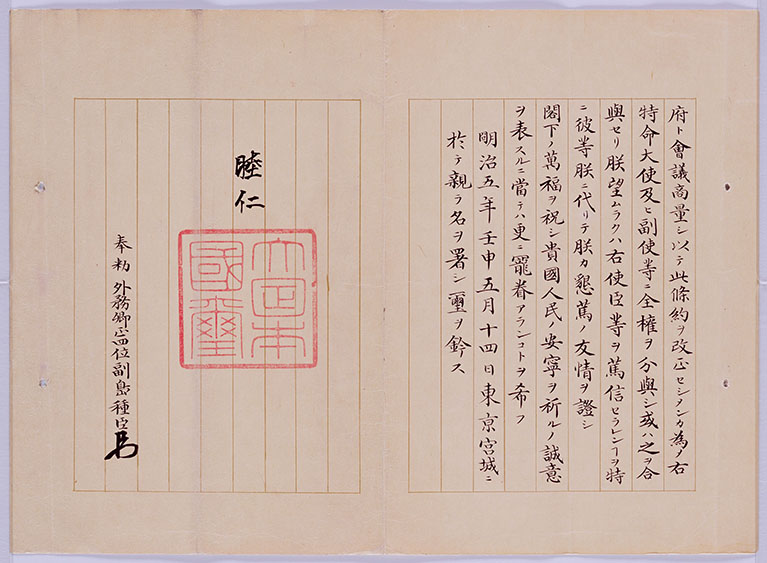 府ト會議商量シ以テ此條約ヲ改正セシメンカ為メ右
特命大使及ヒ副使等ニ全權ヲ分與シ或ハ之ヲ合
與セリ朕望ムラクハ右使臣等ヲ篤信セラレンヿヲ特
ニ彼等朕ニ代リテ朕カ懇篤ノ友情ヲ證シ
閣下ノ萬福ヲ祝シ貴國人民ノ安寧ヲ祈ルノ誠意
ヲ表スルニ當テハ更ニ寵眷アランコトヲ希フ
明治五年壬申五月十四日東京宮城ニ
於テ親ラ名ヲ署シ璽ヲ鈐ス
睦仁
大日本
國璽
奉勅外務卿正四位副島種臣